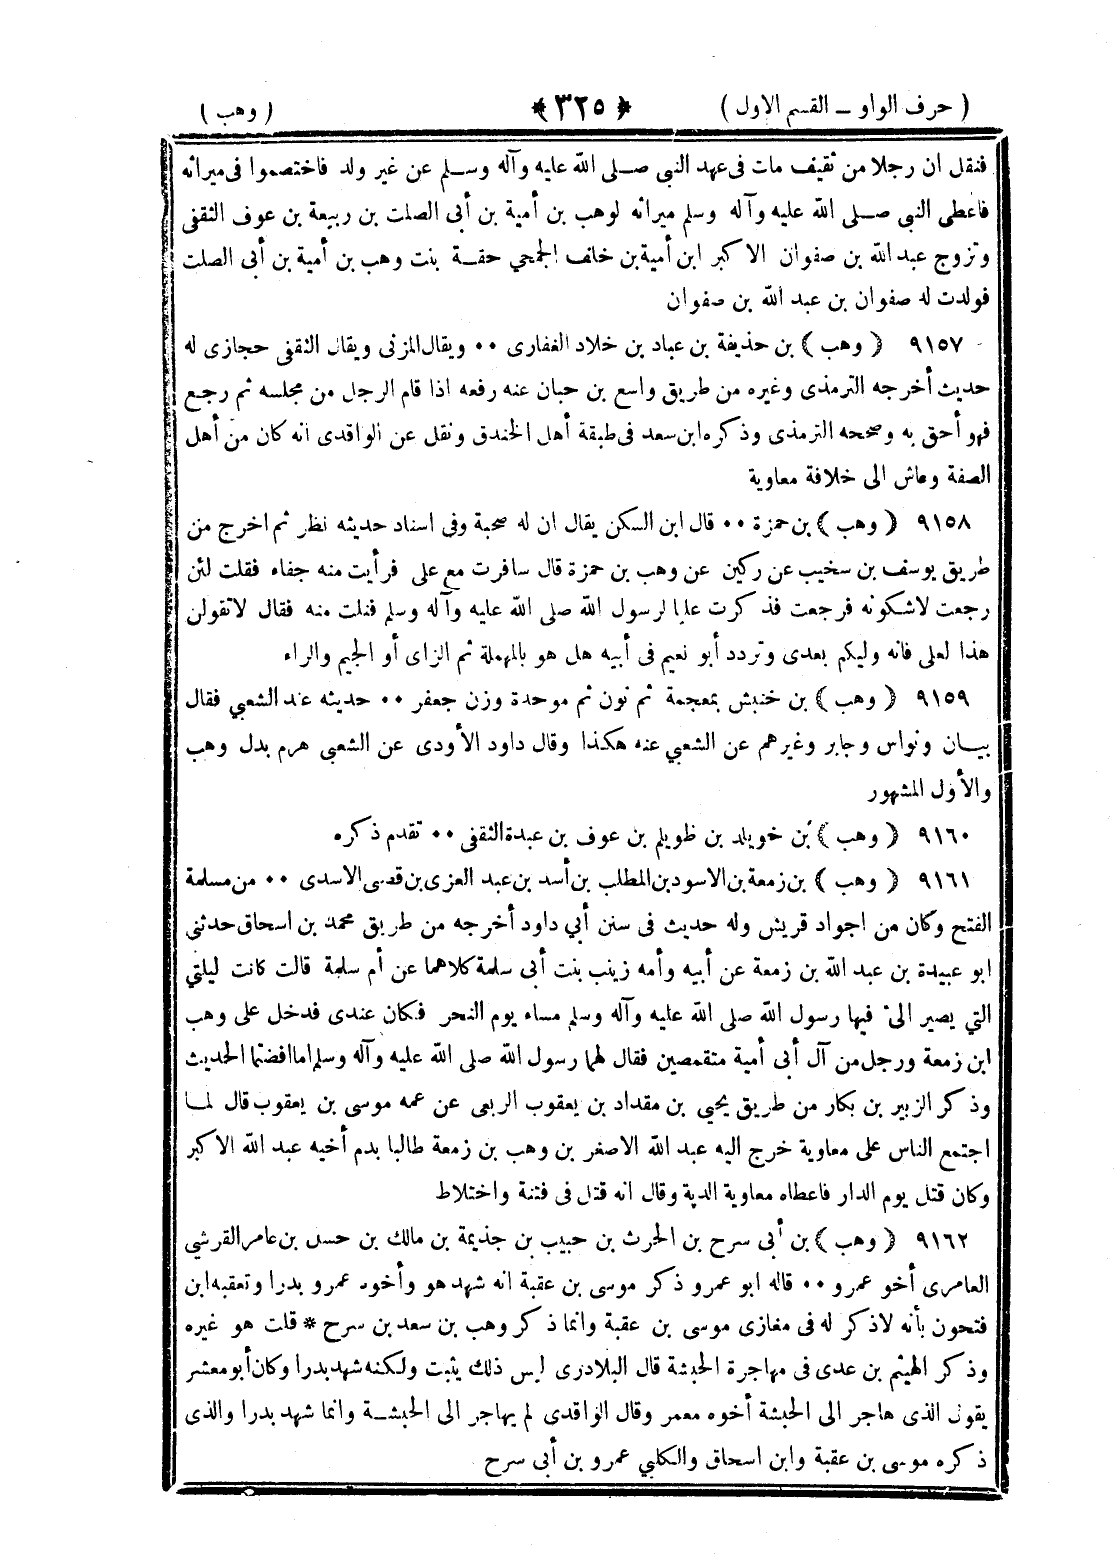 ( حرف الواو ـ القسم الاول ) ﴿ ٣٢٥ ﴾ ( وهب )
فنقل ان رجلا من ثقيف مات فى عهد النبى صلى الله عليه وآله وسلم عن غير ولد فاختصموا فى ميراثه
فاعطى النبى صلى الله عليه وآله وسلم ميراثه لوهب بن أمية بن أبى الصلت بن ربيعة بن عوف الثقفى
وتزوج عبد الله بن صفوان الاكبر ابن أمية بن خلف الجمحي حقة بنت وهب بن أمية بن أبى الصلت
فولدت له صفوان بن عبد الله بن صفوان
٩١٥٧ ﴿ وهب ﴾ بن حذيفة بن عباد بن خلاد الغفارى ٠٠ ويقال المزنى ويقال الثقفى حجازى له
حديث أخرجه الترمذى وغيره من طريق واسع بن حبان عنه رفعه اذا قام الرجل من مجلسه ثم رجع
فهو أحق به وصححه الترمذى وذكره ابن سعد فى طبقة أهل الخندق ونقل عن الواقدى انه كان من أهل
الصفة وعاش الى خلافة معاوية
٩١٥٨ ﴿ وهب ﴾ بن حمزة ٠٠ قال ابن السكن يقال ان له صحبة وفى اسناد حديثه نظر ثم اخرج من
طريق يوسف بن سخيب عن ركين عن وهب بن حمزة قال سافرت مع على فرأيت منه جفاء فقلت لئن
رجعت لاشكونه فرجعت فذكرت عليا لرسول الله صلى الله عليه وآله وسلم فنلت منه فقال لا تقولن
هذا لعلى فانه وليكم بعدى وتردد أبو نعيم فى أبيه هل هو بالمهملة ثم الزاى أو الجيم والراء
٩١٥٩ ﴿ وهب ﴾ بن خنبش بمعجمة ثم نون ثم موحدة وزن جعفر ٠٠ حديثه عند الشعبي فقال
بيان ونواس وجابر وغيرهم عن الشعبي عنه هكذا وقال داود الأودى عن الشعبى هرم بدل وهب
والأول المشهور
٩١٦٠ ﴿ وهب ﴾ بن خويلد بن ظويلم بن عوف بن عبدة الثقفى ٠٠ تقدم ذكره
٩١٦١ ﴿ وهب ﴾ بن زمعة بن الاسود بن المطلب بن أسد بن عبد العزى بن قصى الاسدى ٠٠ من مسلمة
الفتح وكان من اجواد قريش وله حديث فى سنن أبي داود أخرجه من طريق محمد بن اسحاق حدثنى
ابو عبيدة بن عبد الله بن زمعة عن أبيه وأمه زينب بنت أبى سلمة كلاهما عن أم سلمة قالت كانت ليلتي
التي يصير الىّ فيها رسول الله صلى الله عليه وآله وسلم مساء يوم النحر فكان عندى فدخل على وهب
ابن زمعة ورجل من آل أبى أمية متقمصين فقال لهما رسول الله صلى الله عليه وآله وسلم اما افضتما الحديث
وذكر الزبير بن بكار من طريق يحيى بن مقداد بن يعقوب الربعى عن عمه موسى بن يعقوب قال لما
اجتمع الناس على معاوية خرج اليه عبد الله الاصغر بن وهب بن زمعة طالبا بدم أخيه عبد الله الاكبر
وكان قتل يوم الدار فاعطاه معاوية الدية وقال انه قتل فى فتنة واختلاط
٩١٦٢ ﴿ وهب ﴾ بن أبى سرح بن الحرث بن حبيب بن جذيمة بن مالك بن حسل بن عامر القرشي
العامرى أخو عمرو ٠٠ قاله ابو عمرو ذكر موسى بن عقبة انه شهد هو وأخوه عمرو بدرا وتعقبه ابن
فتحون بأنه لا ذكر له فى مغازى موسى بن عقبة وانما ذكر وهب بن سعد بن سرح * قلت هو غيره
وذكر الهيثم بن عدى فى مهاجرة الحبشة قال البلادرى ليس ذلك يثبت ولكنه شهد بدرا وكان أبو معشر
يقول الذى هاجر الى الحبشة أخوه معمر وقال الواقدى لم يهاجر الى الحبشة وانما شهد بدرا والذى
ذكره موسى بن عقبة وابن اسحاق والكلبي عمرو بن أبى سرح